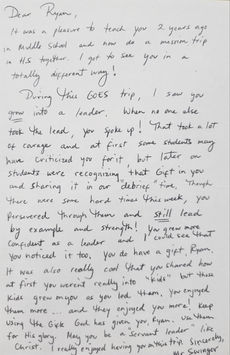 Dear Ryan,
It was a pleasure to teach you 2 years ago
in Middle School and now do a mission trip
in H.S together. I get to see you in a
totally different way!
During this GOES trip, I saw you
grow into a leader. When no one else
took the lead, you spoke up! That took a lot
of courage and at first some students may
have criticized you for it, but later on
students were recognizing that Gift in you
and sharing it in our "debrief" time. Though
there were some hard times this week, you
persevered through them and still lead
by example and strength! You grew more
confident as a leader and I could see that
you noticed it too. You do have a gift, Ryan.
It was also really cool that you shared how
at first you weren't really into "kids" but those
kids grew on you as you led them. You enjoyed
them more... and they enjoyed you more! Keep
using the Gifts God has given you, Ryan. Use them
for His glory. May you be a "Servant leader" like
Christ. I really enjoyed having you on this trip. Sincerely,
Mr. Swinger